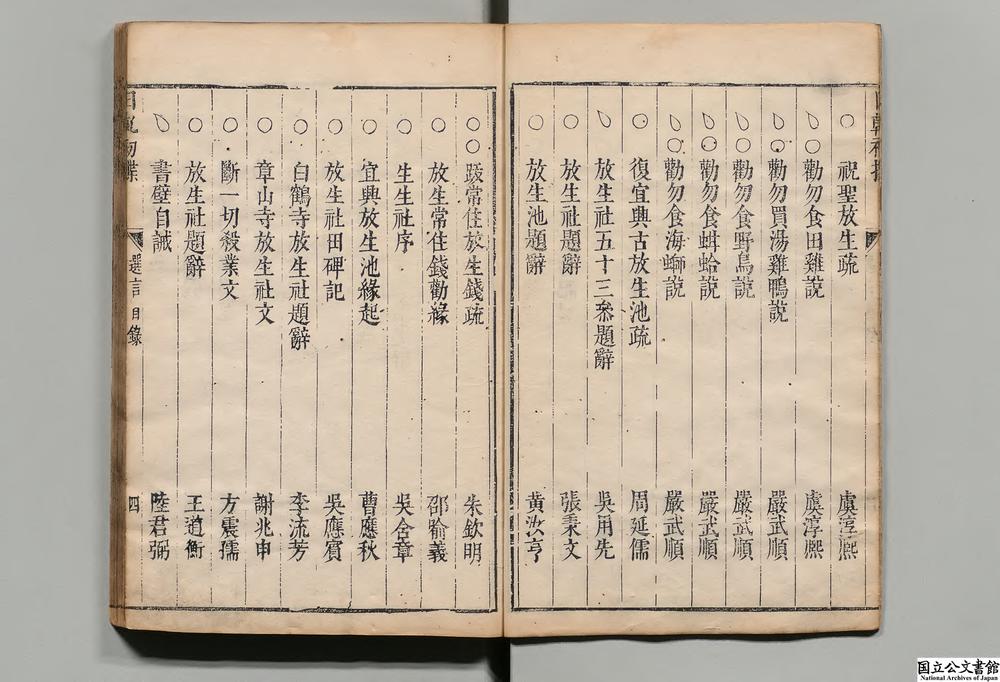 ○ 祝聖放生疏 虞淳熈
○ 勸勿食田雞說 虞淳熈
○ 勸勿買湯雞鴨說 嚴武順
○ 勸勿食野鳥說 嚴武順
○ 勸勿食蚌蛤說 嚴武順
○ 勸勿食海螄說 嚴武順
○ 復宜興古放生池疏 周延儒
放生社五十三叅題辭 吳用先
○ 放生社題辭 張秉文
○ 放生池題辭 黃汝亨
○○ 跋常住放生錢疏 朱欽明
○ 放生常住錢勸緣 邵喻義
○ 生生社序 吳含章
○ 宜興放生池緣起 曹應秋
○ 放生社田碑記 吳應賓
○ 白鶴寺放生社題辭 李流芳
○ 章山寺放生社文 謝兆申
○ 斷一切殺業文 方震孺
○ 放生社題辭 王道衡
書壁自誡 陸君弼
選言目錄 四
国立公文書館
National Archives of Japan